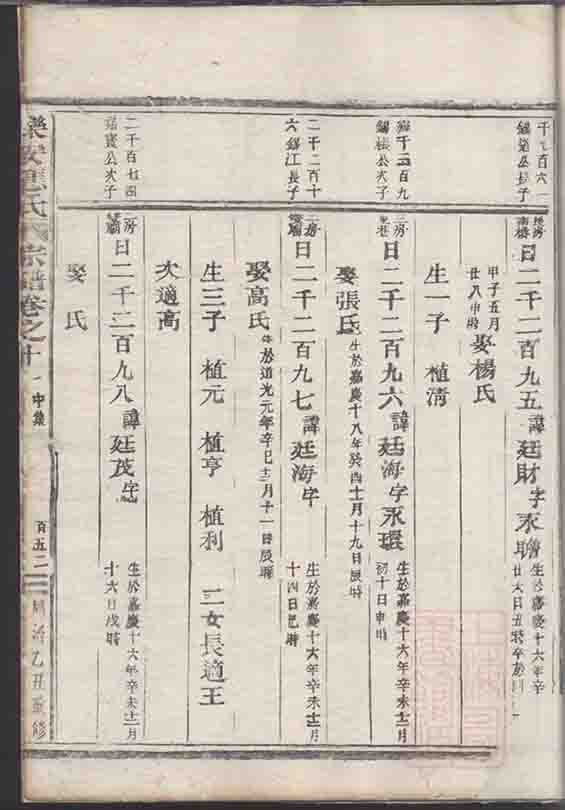 日二千二百九五 諱廷財 字永瞻 生於嘉慶十六年辛
廿六日丑時卒於
甲子五月
廿八申時 娶楊氏
生一子 植淸
錫桂公次子
三房 日二千二百九六 諱廷海 字永環 生於嘉慶十六年辛未十二月
初十日申時
娶張氏 生於嘉慶十八年癸酉十一月十九日辰時
二千二百十
六錫江長子
日二千二百九七 諱廷海 字 生於嘉慶十六年辛未十二月
十四日巳時
娶高氏 生於道光元年辛巳十二月十一日辰時
生三子 植元 植亨 植利 二女長適王
次適高
二千百七四
公次子
日二千二百九八 諱廷茂 字 生於嘉慶十六年辛未十二月
十六日戌時
娶 氏
氏宗譜卷之十一 中集
百五二
同治乙丑重修